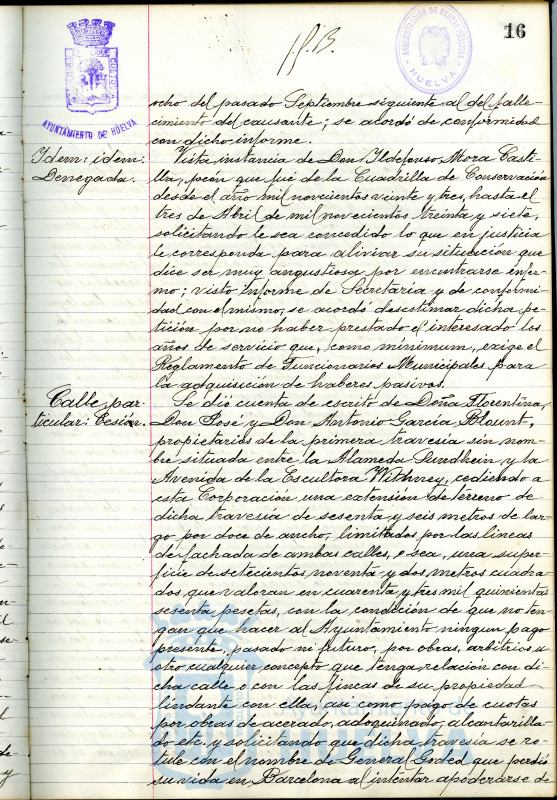 16
AYUNTAMIENTO DE HUELVA
ADMINISTRACIÓN DE RENTAS PÚBLICAS
HUELVA
ocho del pasado Septiembre siguiente al del falle-
cimiento del causante; se acordó de conformidad
con dicho informe.
Idem: idem:
Denegada.
Vista instancia de Don Ildefonso Mora Casti-
lla, peón que fué de la Cuadrilla de Conservación
desde el año mil novecientos veinte y tres, hasta el
tres de Abril de mil novecientos treinta y siete,
solicitando le sea concedido lo que en justicia
le corresponda para aliviar su situación que
dice ser muy angustiosa por encontrarse enfer-
mo; visto informe de Secretaría y de conformi-
dad con el mismo, se acordó desestimar dicha pe-
tición por no haber prestado el interesado los
años de servicio que, como mínimum, exige el
Reglamento de Funcionarios Municipales para
la adquisición de haberes pasivos.
Calle par-
ticular: Cesión.
Se dió cuenta de escrito de Doña Florentina,
Don José y Don Antonio García Blount,
propietarios de la primera travesía sin nom-
bre situada entre la Alameda Sundhein y la
Avenida de la Escultora Withney, cediendo a
esta Corporación una extensión de terreno de
dicha travesía de sesenta y seis metros de lar-
go por doce de ancho, limitados por las lineas
de fachada de ambas calles, o sea, una super-
ficie de setecientos noventa y dos metros cuadra-
dos, que valoran en cuarenta y tres mil quinientas
sesenta pesetas, con la condición de que no ten-
gan que hacer al Ayuntamiento ningun pago
presente, pasado ni futuro, por obras, arbitrios u
otro cualquier concepto que tenga relación con di-
cha calle o con las fincas de su propiedad
lindante con ella, así como pago de cuotas
por obras de acerado, adoquinado, alcantarilla-
do etc. y solicitando que dicha travesía se ro-
tule con el nombre de General Goded que perdió
su vida en Barcelona al intentar apoderarse de